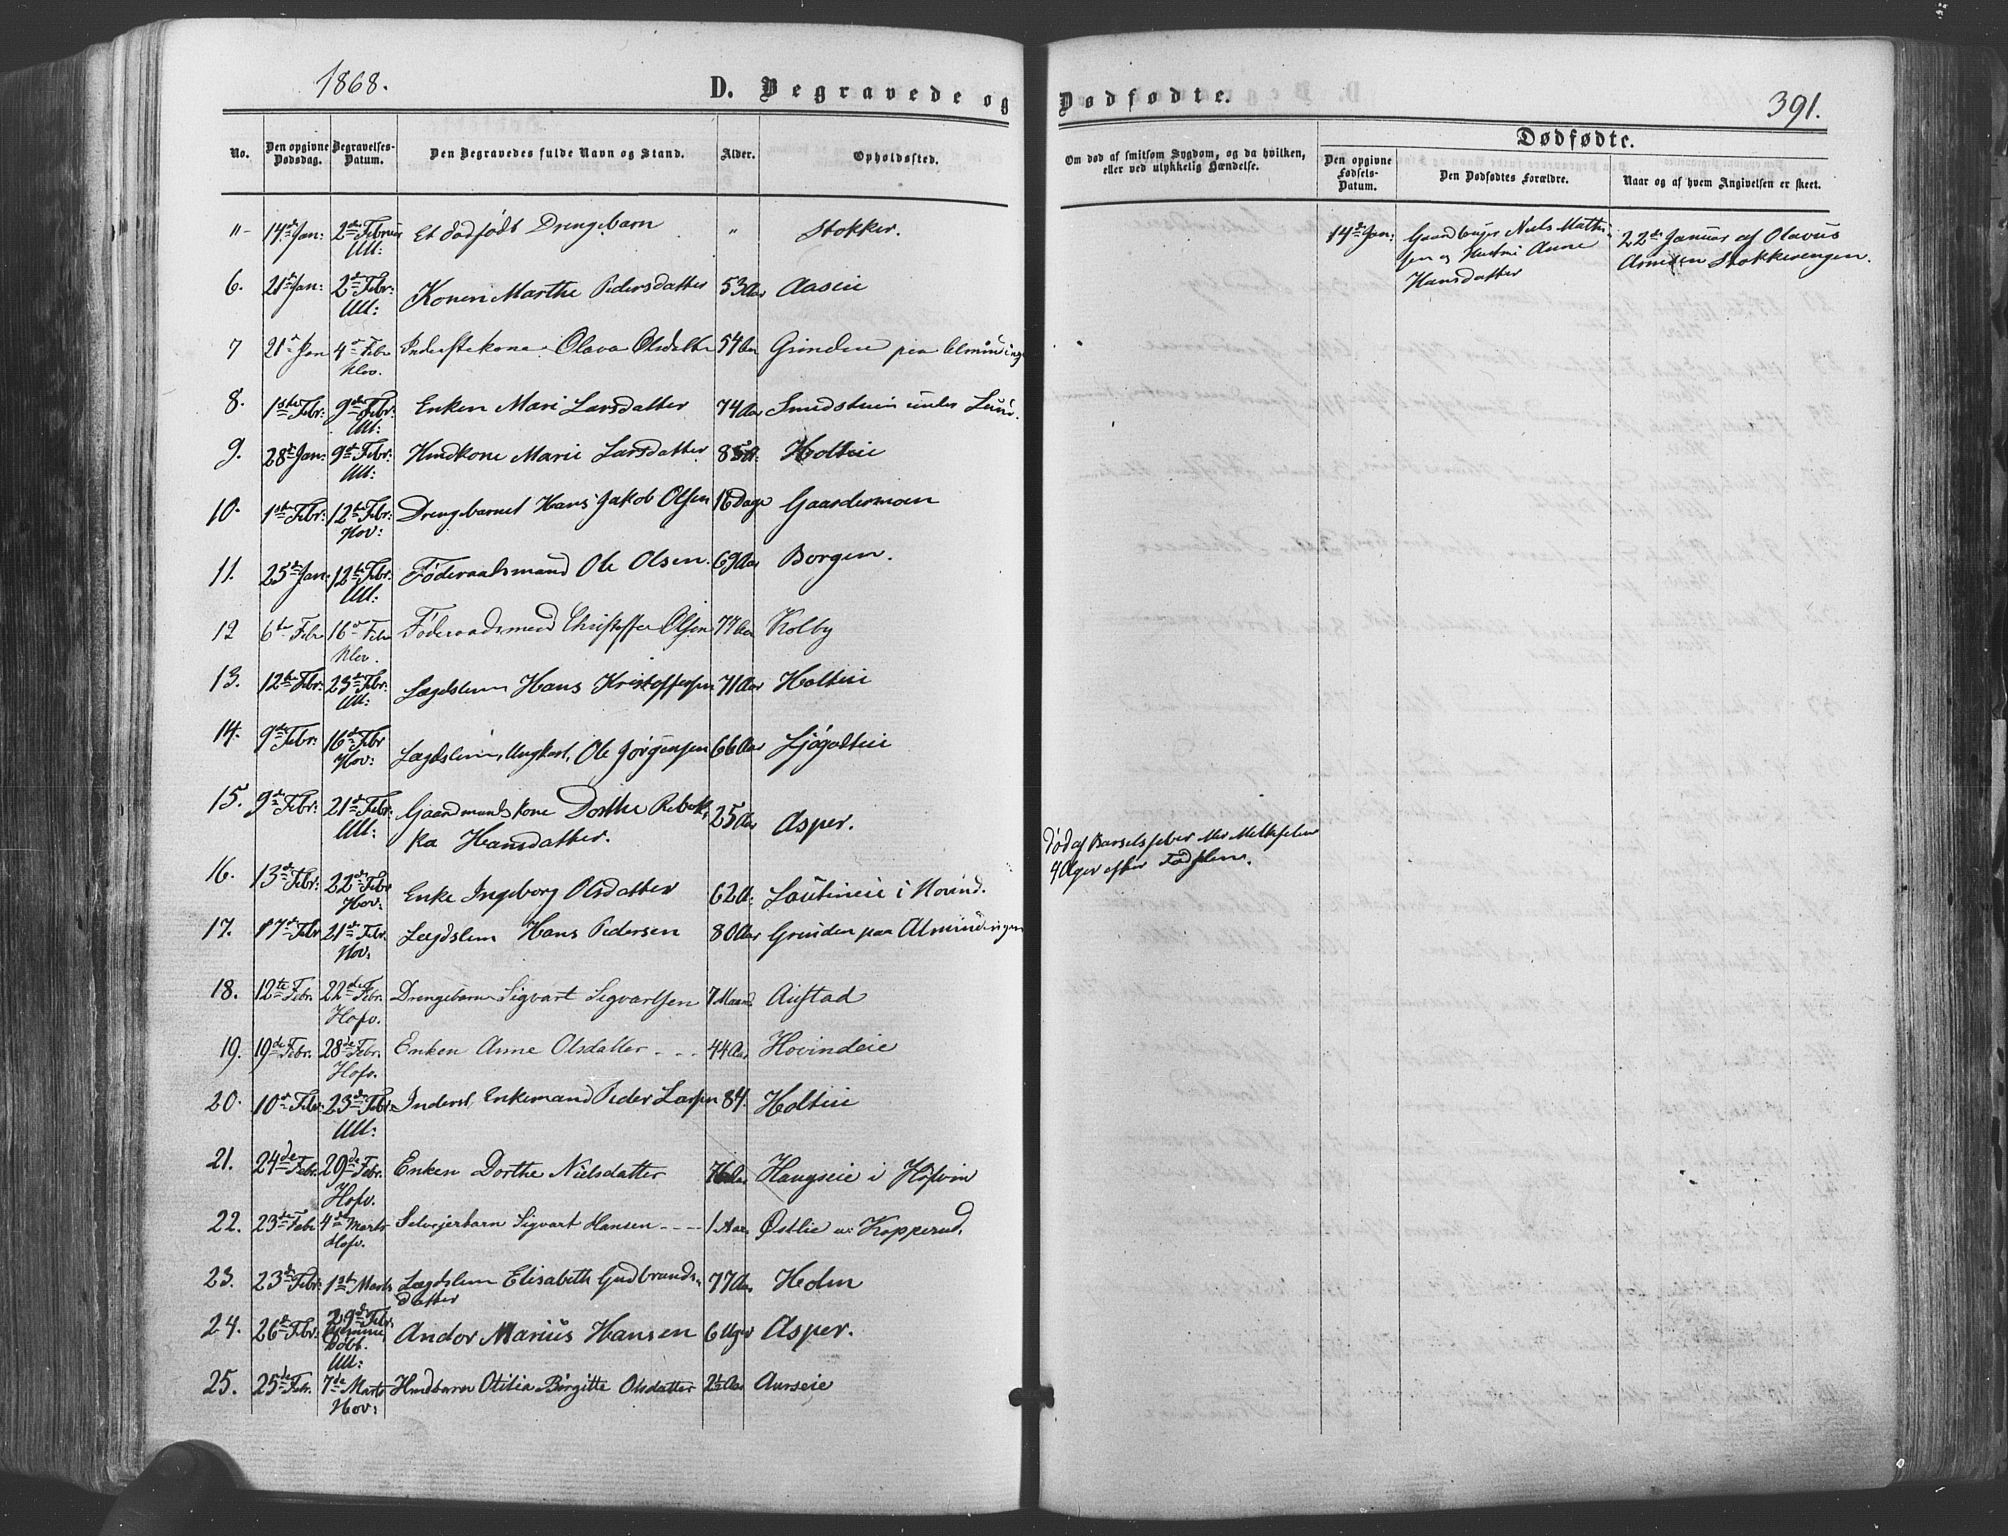 1868.
D. Begravede og Dødfødte.
391.
No.
Den opgivne Dødsdag.
Begravelses-Datum.
Den Begravedes fulde Navn og Stand.
Alder.
Opholdssted.
Om død af smitsom Sygdom, og da hvilken,
eller ved ulykkelig Hændelse.
Dødfødte.
Den opgivne Fødsels-Datum.
Den Dødfødtes Forældre.
Naar og af hvem Angivelsen er skeet.
"- 14de Jan: 2de Februar Et dødfødt Drengebarn " Stokker. 14de Jan: Gaardbruger Niels Mathi- 22de Januar af Olavus
Ull: sen og Hustru Anne Arnesen Stokkerengen.
Hansdatter
6. 21de Jan: 2de Febr: Konen Marthe Pedersdatter 53 Aar Aaseie
Ull:
7 21de Jan 4de Febr Inderstekone Olava Olsdatter 54 Aar Grinden paa Almindinge
Klev.
8. 1ste Febr: 9de Febr: Enken Mari Larsdatter 74 Aar Smedstuen under Lund.
Ull:
9. 28de Jan: 9de Febr: Huskone Marie Larsdatter 85 A: Holteie
Ull:
10. 1ste Febr: 12te Febr: Drengebarnet Hans Jakob Olsen 16 Dage Gaardermoen
Hov:
11. 25de Jan: 12te Febr: Føderaadsmand Ole Olsen. 69 Aar Borgen.
Ull:
12 6te Febr 16de Febr Føderaadsmand Christoffer Olsen 77 Aar Kolby
Klev.
13. 12te Febr: 23de Febr: Lægdslem Hans Kristoffersen 71 Aar Holteie
Ull:
14. 9de Febr: 16de Febr Lægdslem, Ungkarl, Ole Jørgensen 66 Aar Ljøgodteie
Hov:
15. 9de Febr: 21de Febr: Gaardmandskone Dorthe Rebek- 25 Aar Asper. død af Barselfeber
Ull: ka Hansdatter. 4 Uger efter Fødslen.
16. 13de Febr: 22de Febr Enke Ingeborg Olsdatter 62 A: i Hovind.
Hov:
17. 17de Febr 21de Febr. Lægdslem Hans Pedersen 80 Aar Grinden paa Almindingen
Hov.
18. 12te Febr. 22de Febr. Drengebarn Sigvart Sigvartsen 7 Maand. Austad
Hofv.
19. 19de Febr. 28de Febr. Enken Anne Olsdatter - - - 44 Aar Hovindeie
Hofv.
20. 10de Febr 23de Febr. Inderst, Enkemand Peder Larsen 84. Holteie
Ull:
21. 24de Febr. 29de Febr. Enken Dorthe Nielsdatter 76 Aar Haugseie i Hofvin
Hofv.
22. 23de Febr 4de Marts Selveierbarn Sigvart Hansen - - - - 1 Aar. Østlie u. Kopperud.
Hofv.
23. 23de Febr: 1ste Marts Lægdslem Elisabeth Gudbrands- 77 Aar Holm
datter
24. 26de Febr: 29de Febr. Andor Marius Hansen 6 Uger Asper.
Hjemme
Døbt.
Ull:
25. 25de Febr. 7de Marts Husbarn Otilia Birgitte Olsdatter 2½ Aar Aurseie
Hov: